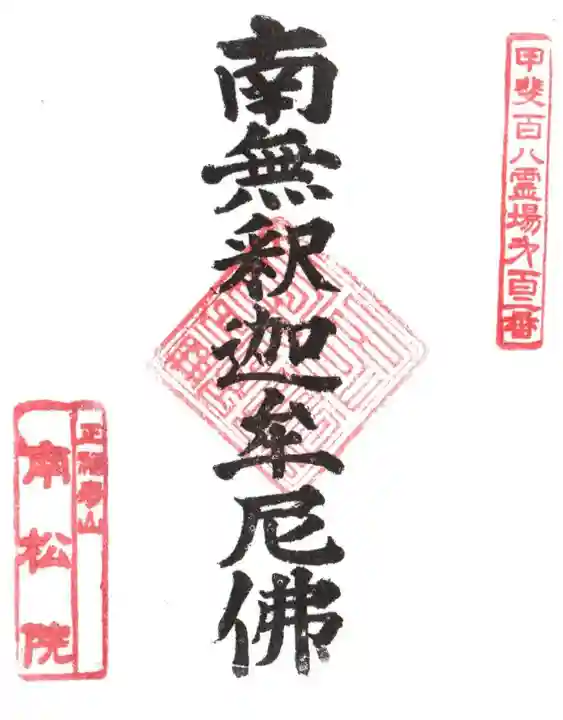 甲斐百八霊場第百二番
南無釈迦牟尼佛
正福寿山
南松院